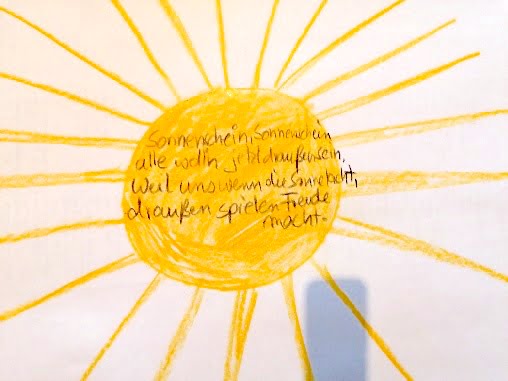 Sonnenschein, Sonnenschein
alle wolln jetzt draußen sein,
weil uns wenn die Sonne lacht,
draußen spielen Freude
macht.